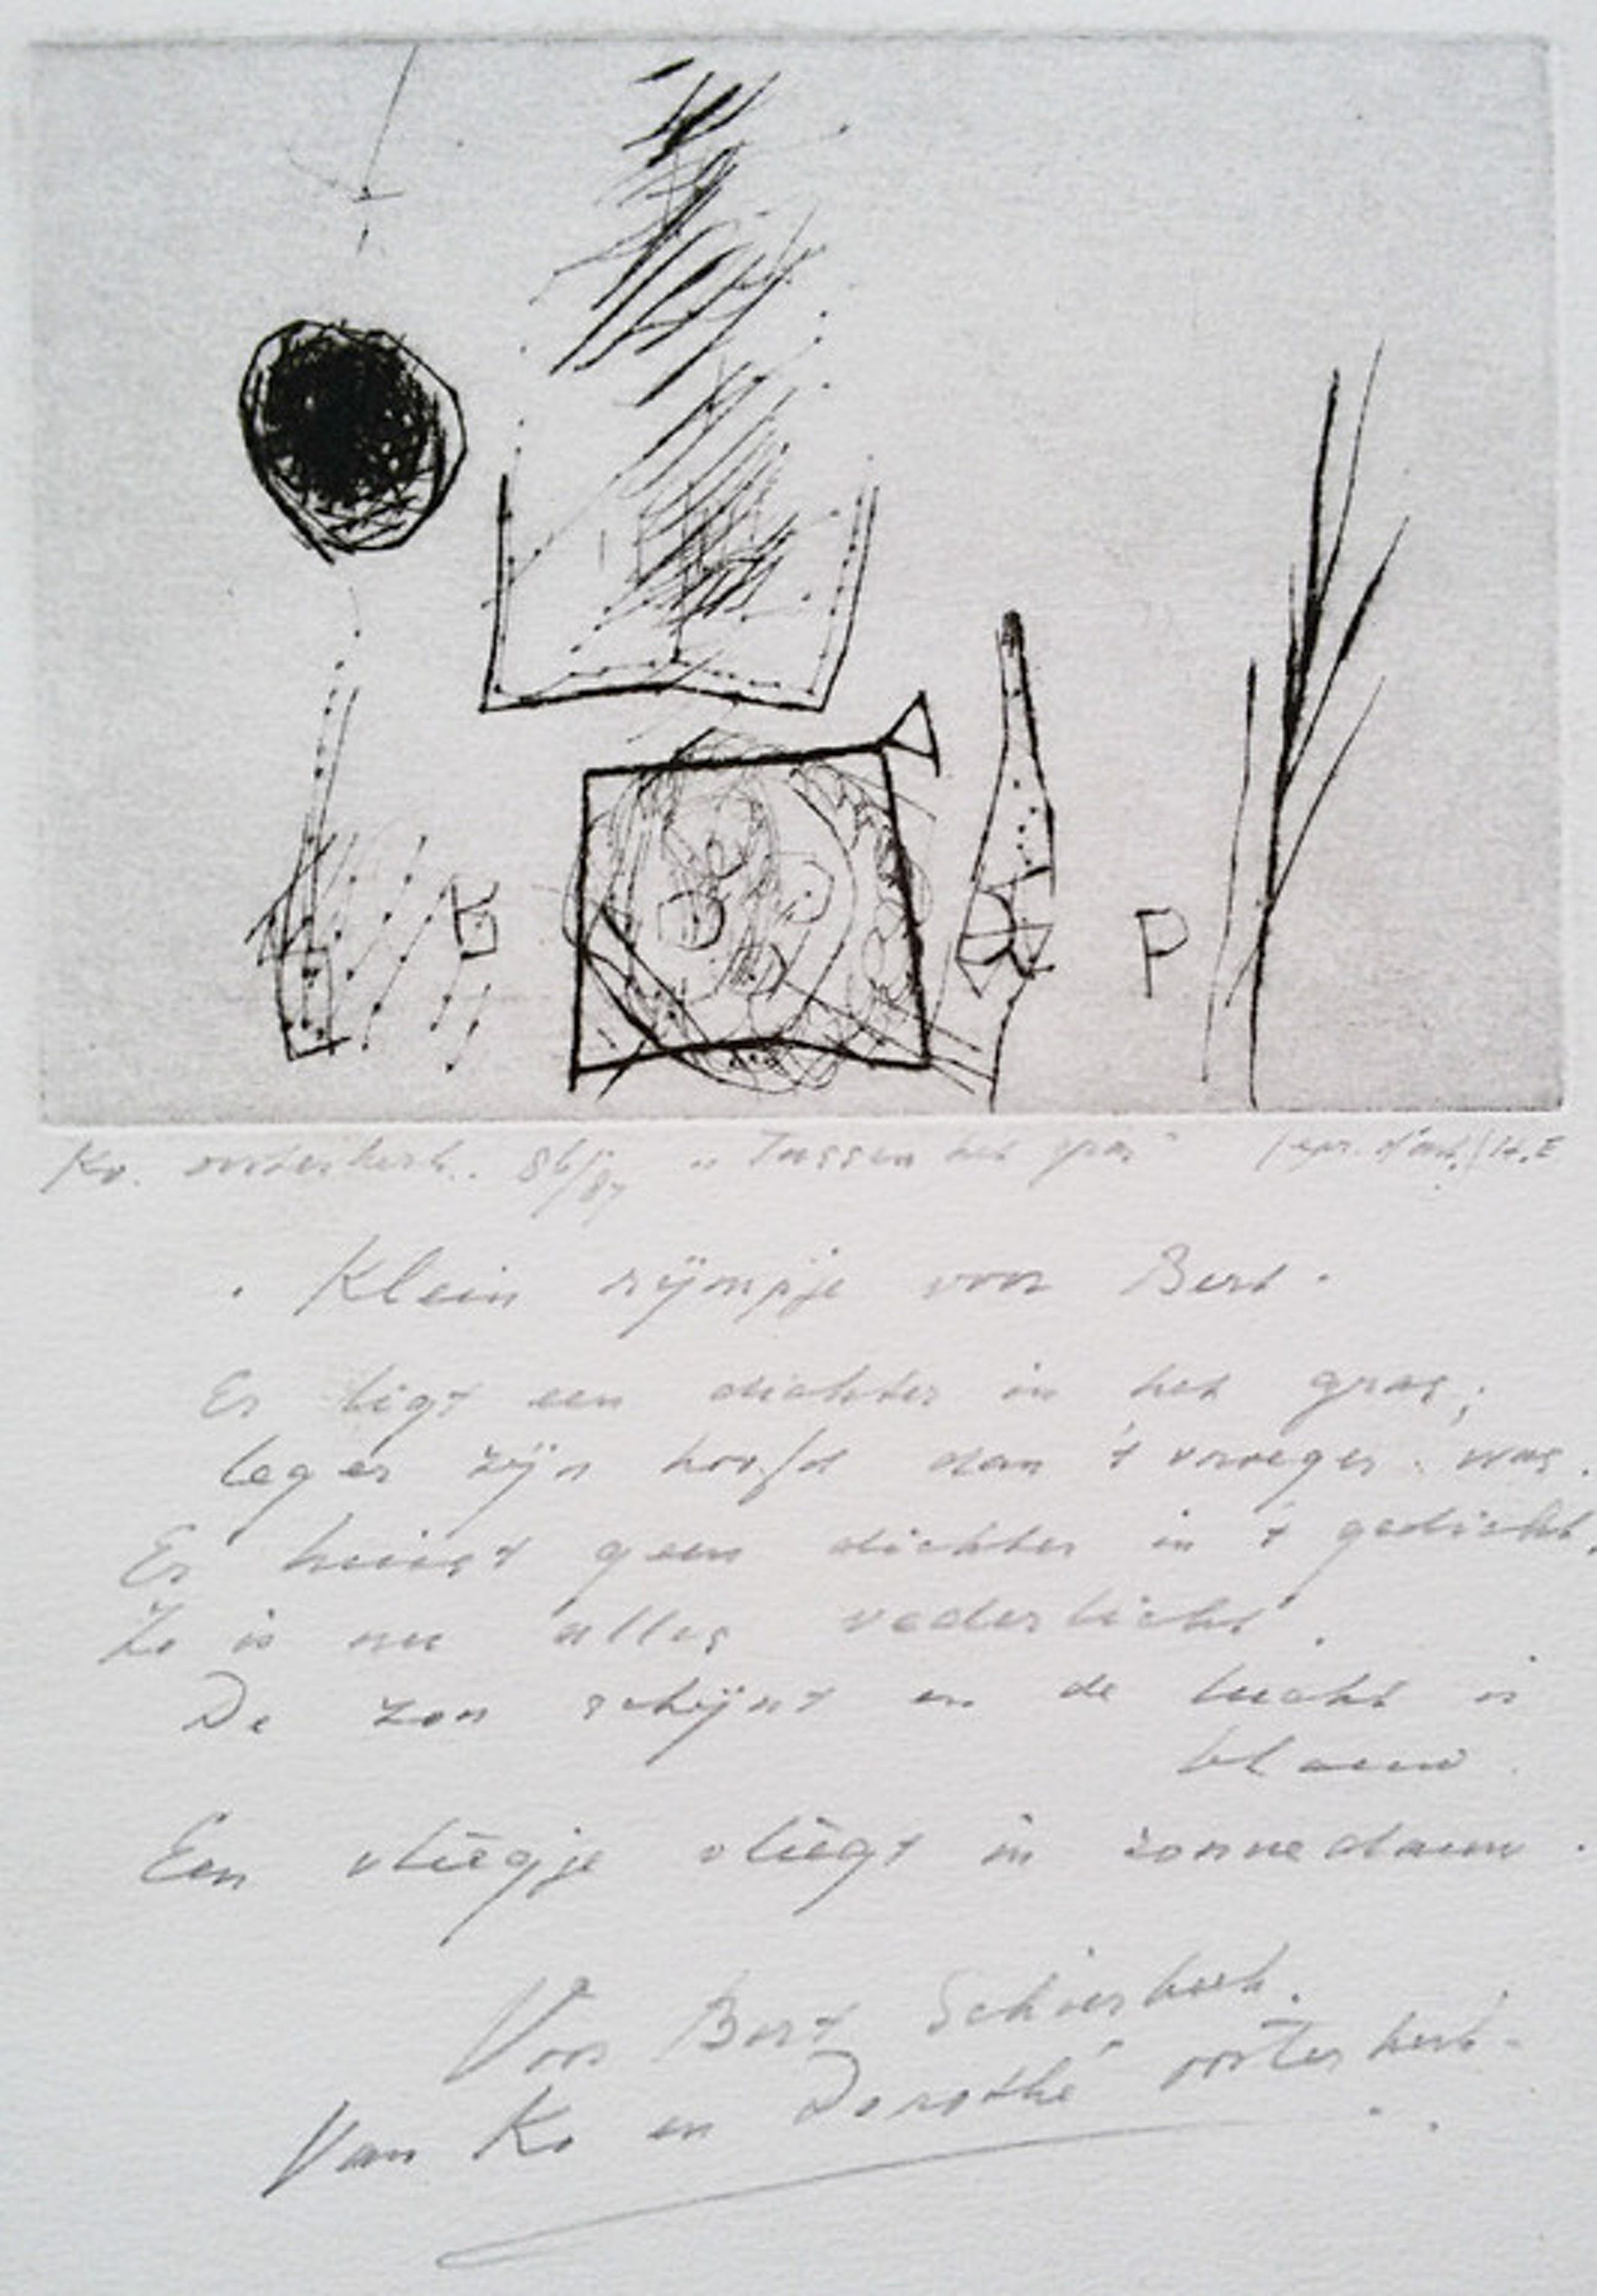 P
Ko. oosterkerk. 86/87 „Tussen het gras" (epr. d'art.) H.E
. Klein rijmpje voor Bert .
Er ligt een dichter in het gras;
leger zijn hoofd dan 't vroeger was.
Er huist geen dichter in 't gedicht,
Zo is nu alles vederlicht.
De zon schijnt en de lucht is
blauw.
Een vliegje vliegt in zonnedauw.
Voor Bert Schierbeek.
Van Ko en Dorothé oosterkerk.